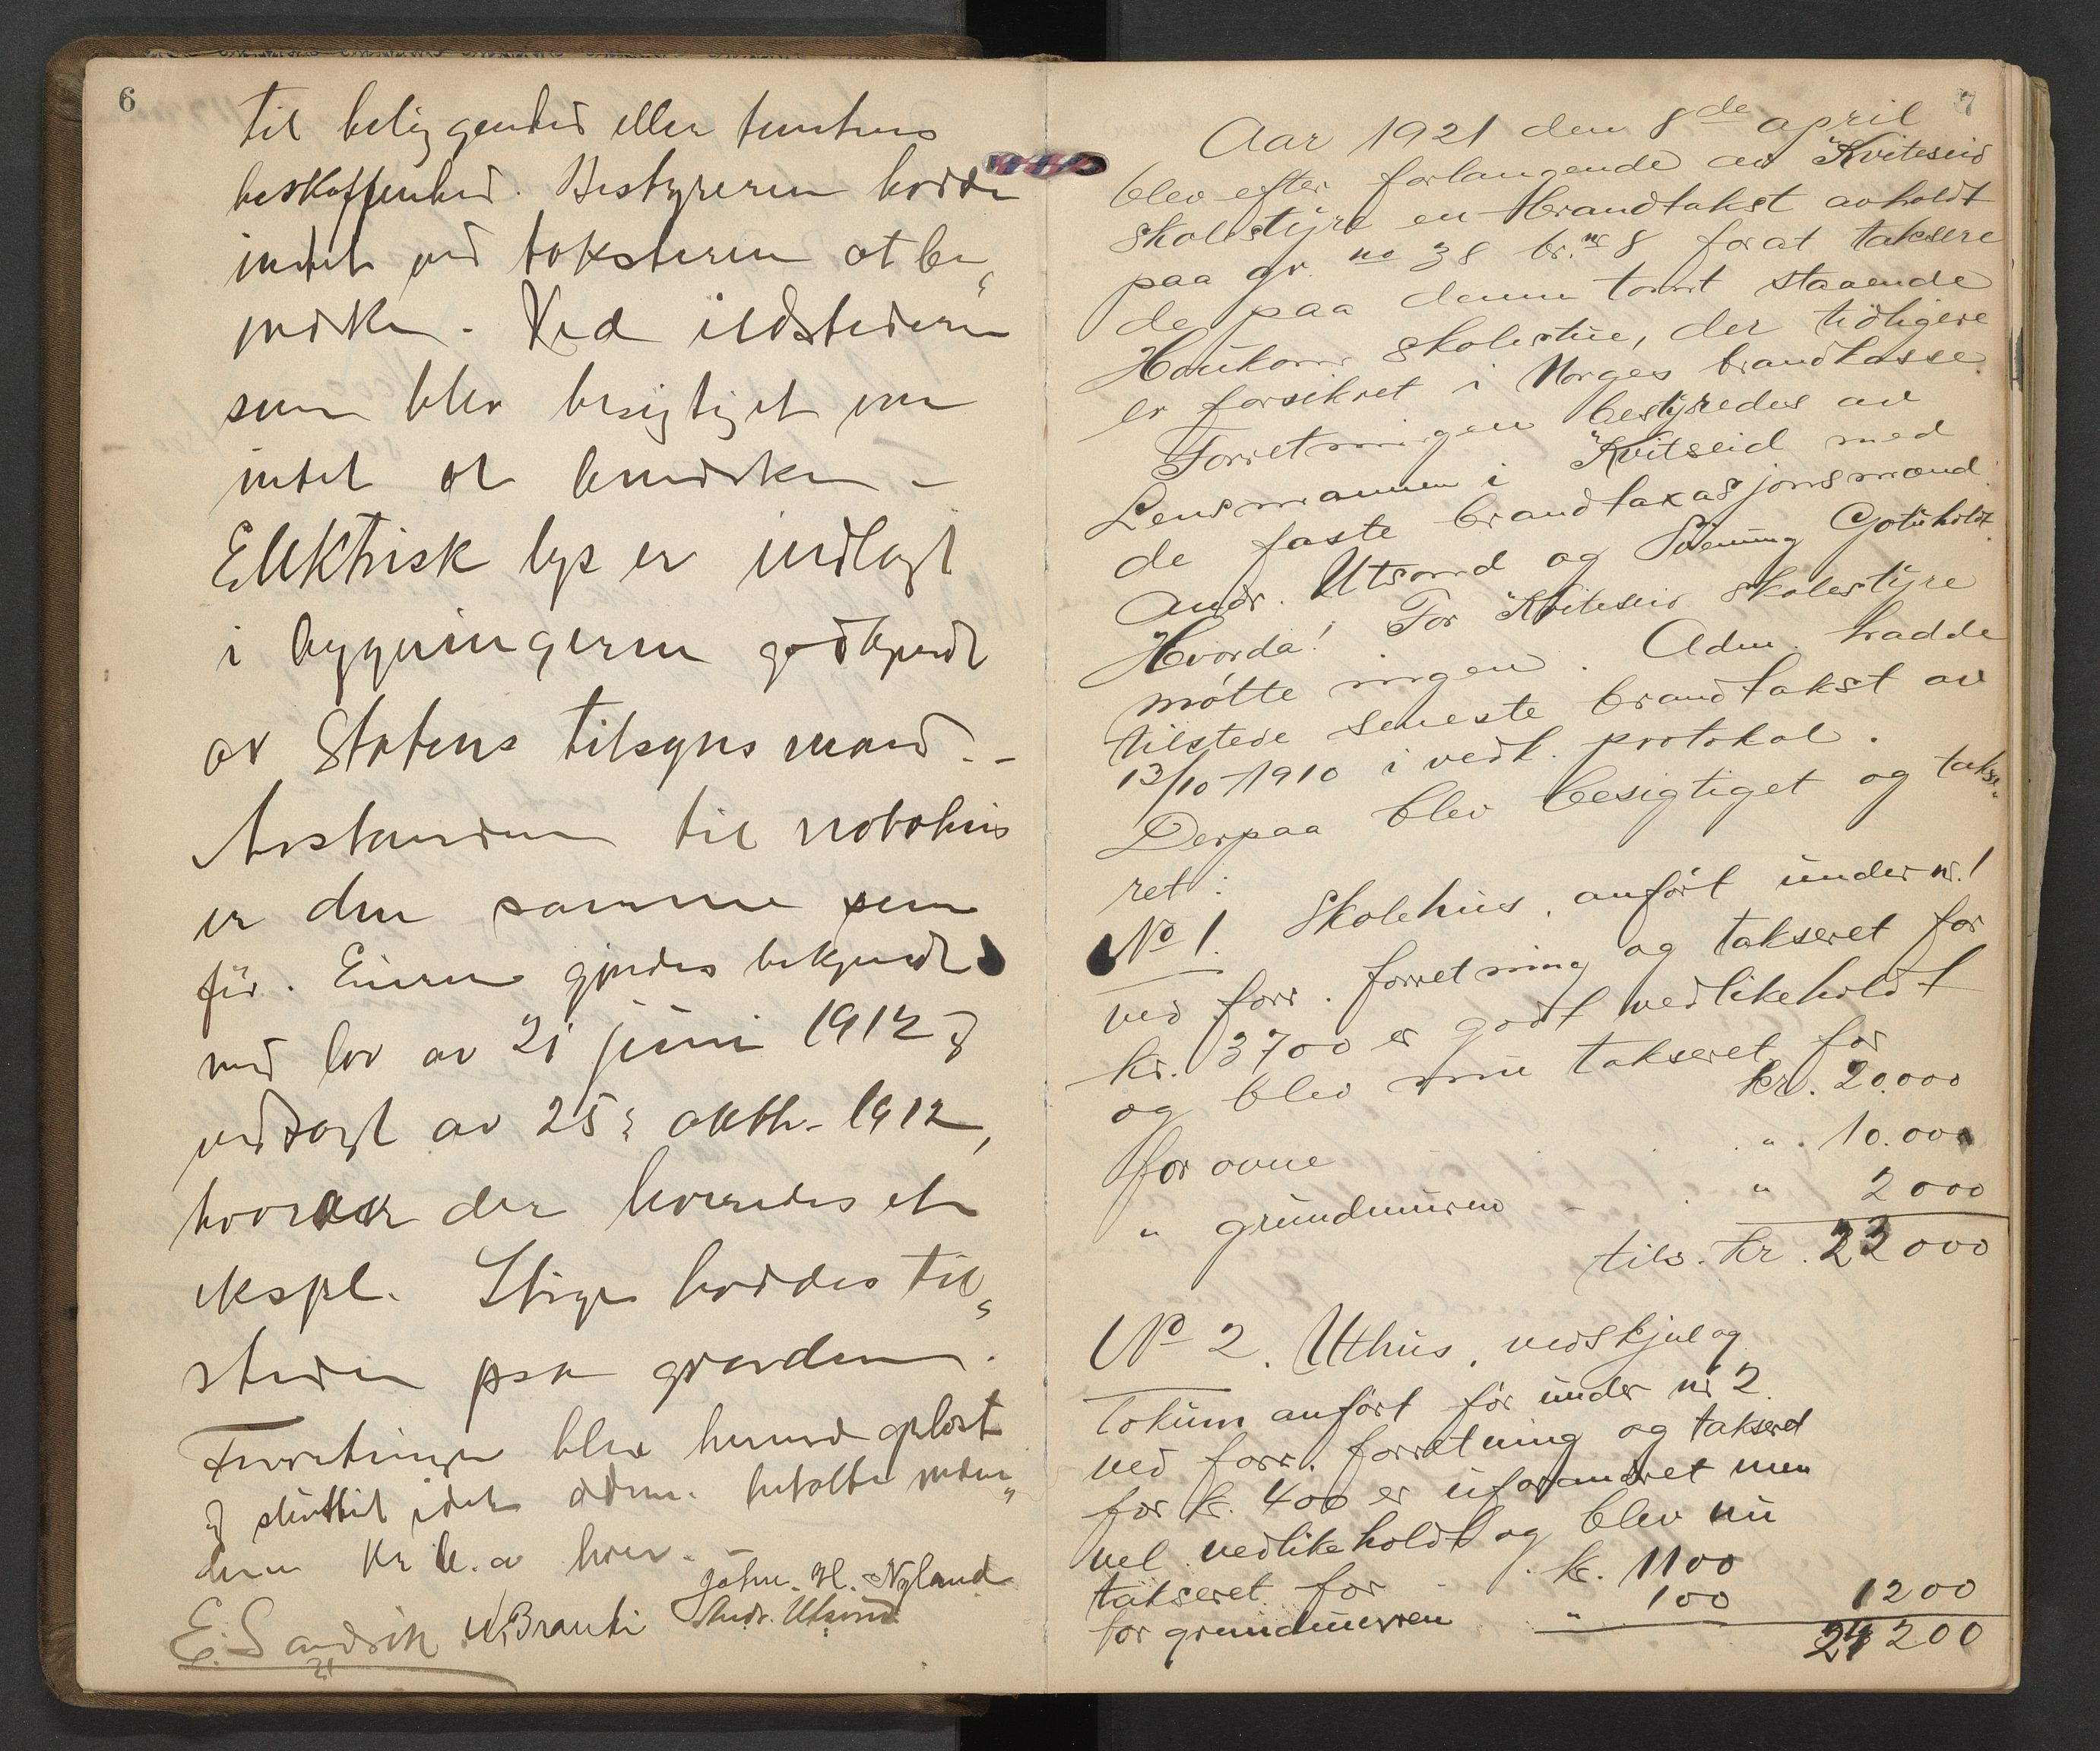 6
til beliggenhed eller tomtens
beskaffenhed. Bestyreren hadde
intet ved taksterne at be„
merke. Ved ildstederne
som blev besigtiget var
intet at bemerke -
Elektrisk lys er indlagt
i bygningerne godkjendt
av Statens tilsynsmand. -
Avstanden til nabohus
er den samme som
før. Eieren gjordes bekjendt
med lov av 21 juni 1912 og
vedtægt av 25: oktbr. 1912,
hvorav der leveredes et
ekspl. Stige haddes til„
stede paa gaarden.
Forretningen blev herved oplæst
og sluttet idet adm. betalte mæn„
dene kr. a hver. -
E. Sandvik N. Brauti John. H. Nyland
Andr. Utsond
7
Aar 1921 den 8de april
blev efter forlangende av Kviteseid
skolestyre en brandtakst avholdt
paa gr. no 38 br. nr 8 forat taksere
de paa denne tomt staaende
Haukom skolestue, der tidligere
er forsikret i Norges brandkasse.
Forretningen bestyredes av
Lensmannen i Kvitseid med
de faste brandtaxasjonsmænd
Andr. Utsond og Svenung Gotuholt
Hvorda! For Kviteseid skolestyre
møtte ingen. Adm. hadde
tilstede seneste brandtakst av
13/10-1910 i vedk. protokol.
Derpaa blev besigtiget og takse„
ret:
No 1. Skolehus, anført under nr. 1
ved forr. forretning og takseret for
kr. 3700 er godt vedlikeholdt
og blev nu takseret for
kr. 20.000
for ovne " 10.000
" grundmuren - " 2000
tils. kr. 22000
No 2. Uthus, vedskjul og
lokum anført før under nr 2
ved forr. forretning og takseret
for kr. 400 er uforandret men
vel vedlikeholdt og blev nu
takseret for - kr. 1100
for grundmuren " 100 1200
200